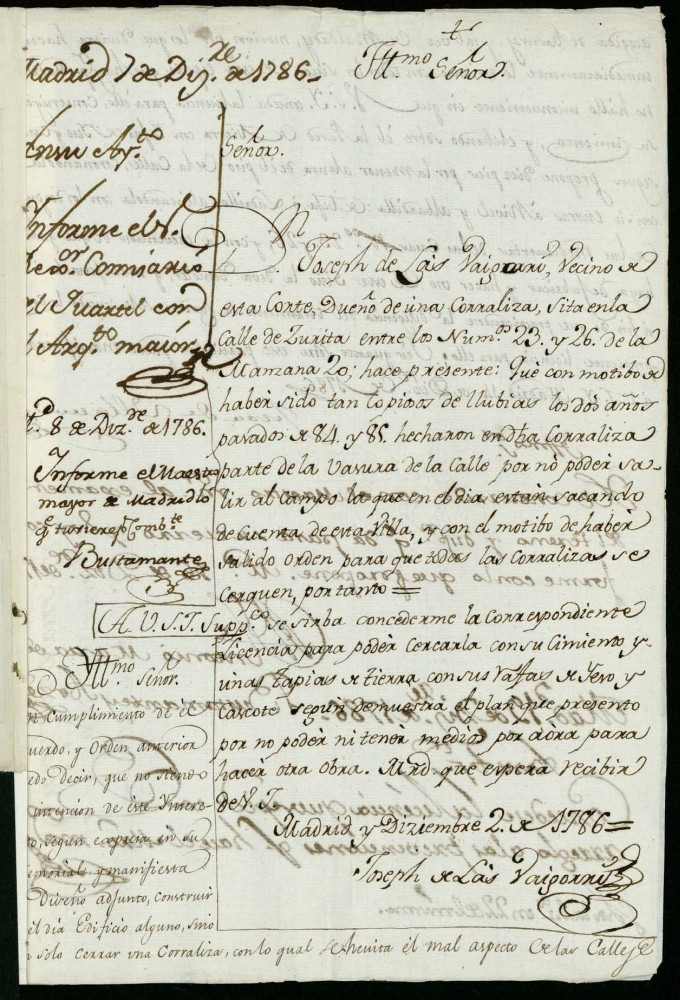 Madrid 7 de Diz.re de 1786.
en su Ay.to
Informe el S.
Comisario
el Quartel con
l Arq.to maior
8 de Diz.re de 1786.
Informe el Maestro
mayor de Madrid lo
q.e tuviere p.r comb.te
Bustamante
Ill.mo Señor.
n Cumplimiento de el
uerdo, y Orden anterior
edo decir, que no tiene
intencion de este Intere-
to, segun expresa en su
emorial, y manifiesta
Diseño adjunto, construir
el dia Edificio alguno, sino
n solo cerrar una Corraliza, con lo qual se hevita el mal aspecto de las Calles
Ill.mo Señor.
Señor.
D.n Joseph de Las Baigorri, Vecino de
esta Corte, Dueño de una Corraliza, sita en la
Calle de Zurita entre los Num.os 23. y 26. de la
Manzana 20; hace presente: Que con motibo de
haber sido tan copiosos de llubias los dos años
pasados de 84. y 85. hecharon en dha Corraliza
parte de la vasura de la Calle por no poder sa-
lir al campo la que en el dia estan sacando
de cuenta de esta Villa, y con el motibo de haber
salido orden para que todas las Corralizas se
Cerquen, por tanto =
A V.S.I. Supp.co se sirba concederme la correspondiente
licencia para poder cercarla con su Cimiento y
unas tapias de tierra con sus Raffas de Yeso, y
Cascote segun demuestra el plan que presento
por no poder ni tener medios por aora para
hacer otra obra. Mrd que espera recibir
de V. I.
Madrid y Diziembre 2. de 1786=
Joseph de Las Baigorri